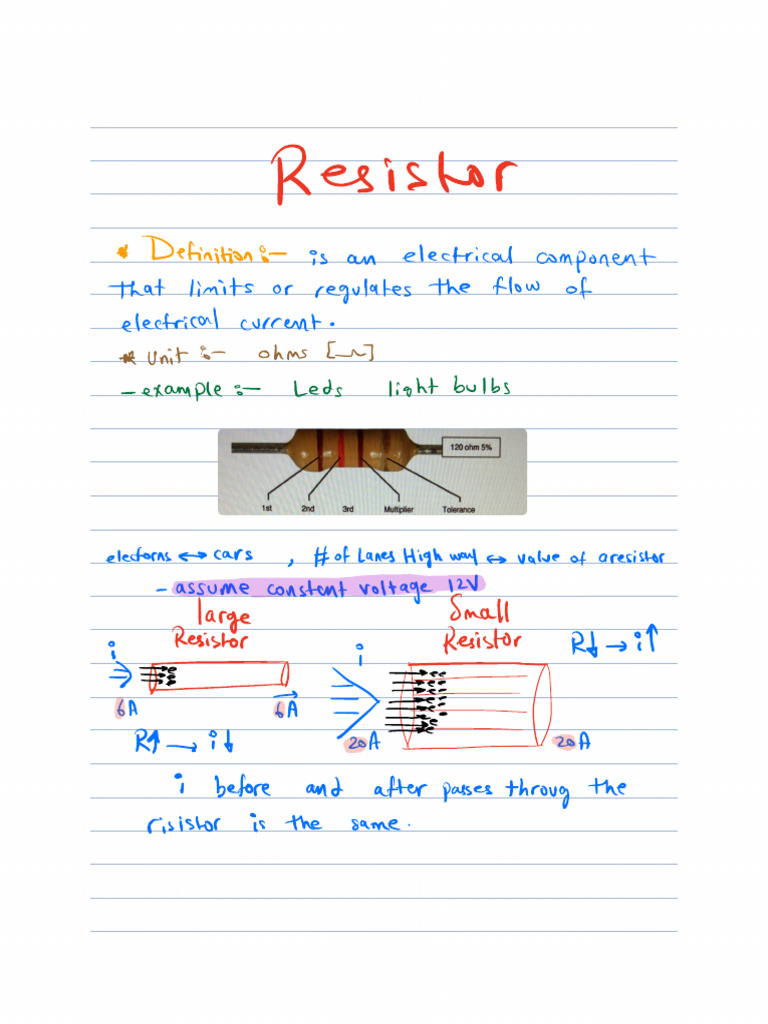 Resistor
* Definition:- is an electrical component
that limits or regulates the flow of
electrical current.
* Unit:- ohms [Ω]
- example:- Leds light bulbs
120 ohm 5%
1st 2nd 3rd Multiplier Tolerance
elecforns ↔ cars , # of Lanes High way ↔ value of aresistor
- assume constent voltage 12V
large Small
Resistor Resistor R↓ → i↑
i i
6A 6A
R↑ → i↓ 20A 20A
i before and after passes throug the
risistor is the same.